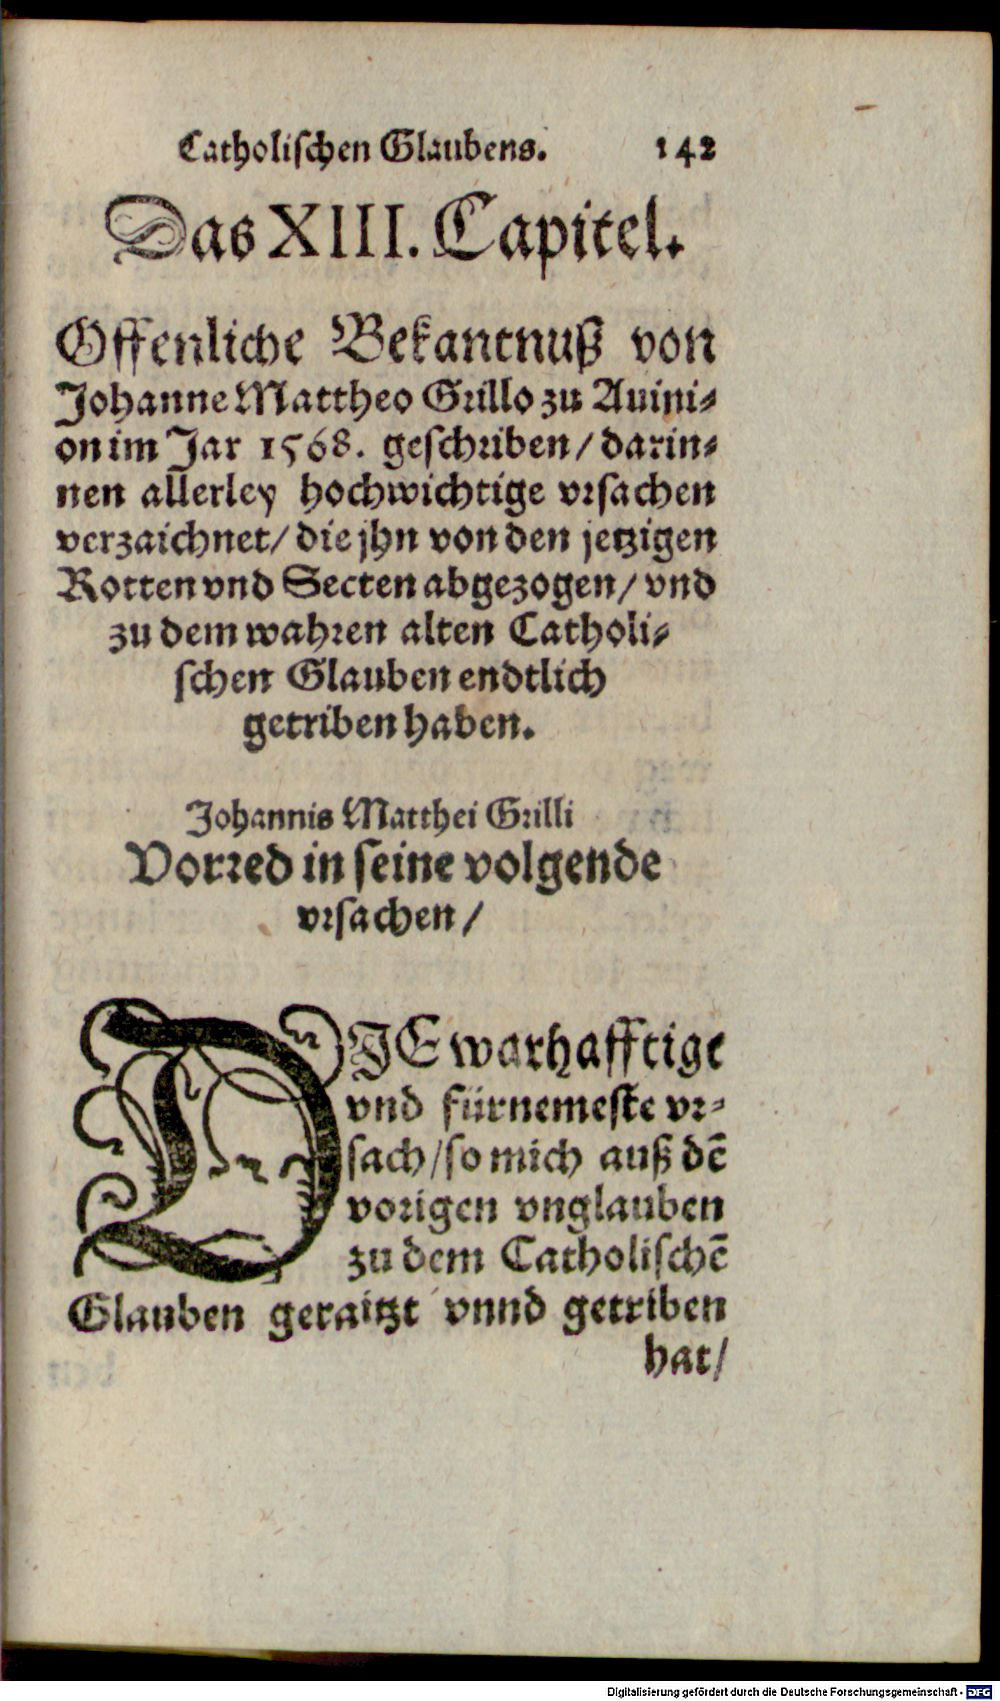 Catholischen Glaubens. 142
Das XIII. Capitel.
Offenliche Bekantnuß von
Johanne Mattheo Grillo zu Auini-
on im Jar 1568. geschriben / darin-
nen allerley hochwichtige vrsachen
verzaichnet / die jhn von den jetzigen
Rotten vnd Secten abgezogen / vnd
zu dem wahren alten Catholi-
schen Glauben endtlich
getriben haben.
Johannis Matthei Grilli
Vorred in seine volgende
vrsachen /
DIE warhafftige
vnd fürnemeste vr-
sach / so mich auß dē
vorigen vnglauben
zu dem Catholischē
Glauben geraitzt vnnd getriben
hat /
Digitalisierung gefördert durch die Deutsche Forschungsgemeinschaft - DFG